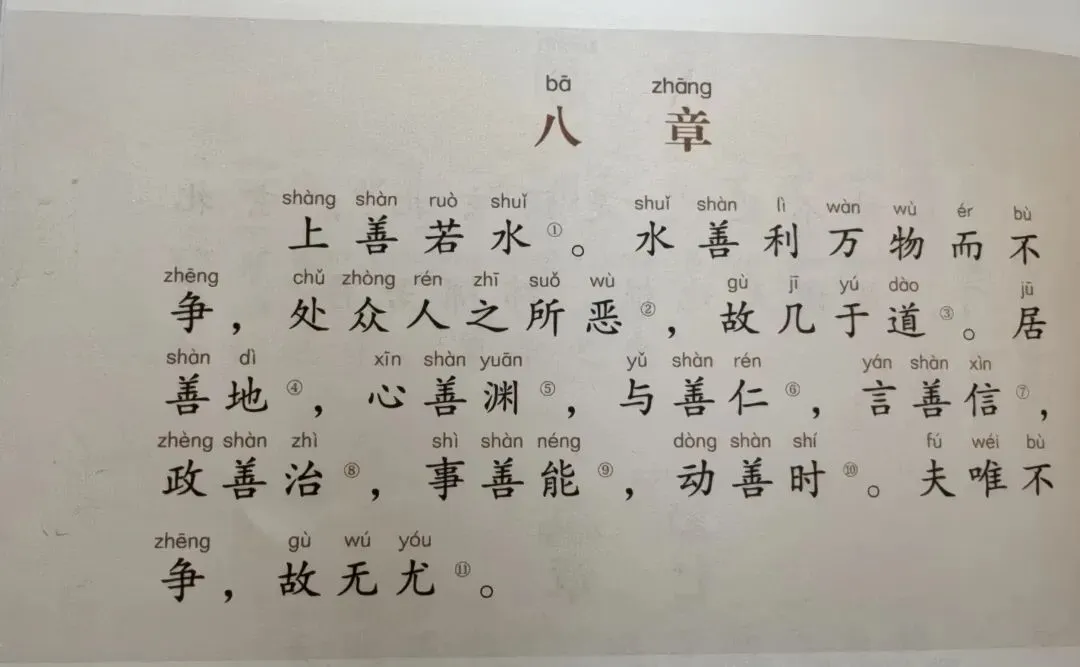 bā zhāng
八 章
shàng shàn ruò shuǐ shuǐ shàn lì wàn wù ér bù
上善若水①。水善利万物而不
zhēng chǔ zhòng rén zhī suǒ wù gù jī yú dào jū
争，处众人之所恶②，故几于道③。居
shàn dì xīn shàn yuān yǔ shàn rén yán shàn xìn
善地④，心善渊⑤，与善仁⑥，言善信⑦，
zhèng shàn zhì shì shàn néng dòng shàn shí fú wéi bù
政善治⑧，事善能⑨，动善时⑩。夫唯不
zhēng gù wú yóu
争，故无尤⑪。